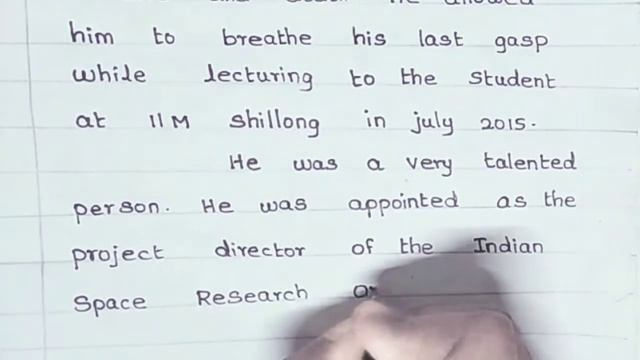 him to breathe his last gasp
while lecturing to the Student
at IIM shillong in july 2015.
He was a very talented
person. He was appointed as the
project director of the Indian
Space Research